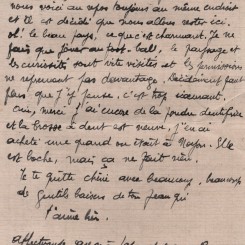 nous voici au repos toujours au même endroit
et il est décidé que nous allons rester ici.
oh! le beau pays, ce que c'est charmant. Je ne
fais que jouer au foot-ball, le paysage et
les curiosités sont vite visités et les permissions
ne reprennent pas davantage. Décidément faut
plus que j'y pense, c'est trop
oui, merci j'ai encore de la poudre dentifrice
et la brosse à dent est neuve, j'en ai
acheté une quand on était à Noyon. Elle
est boche, mais ça ne fait rien.
Je te quitte chérie avec beaucoup, beaucoup
de gentils baisers de ton Jean qui
t'aime bien.